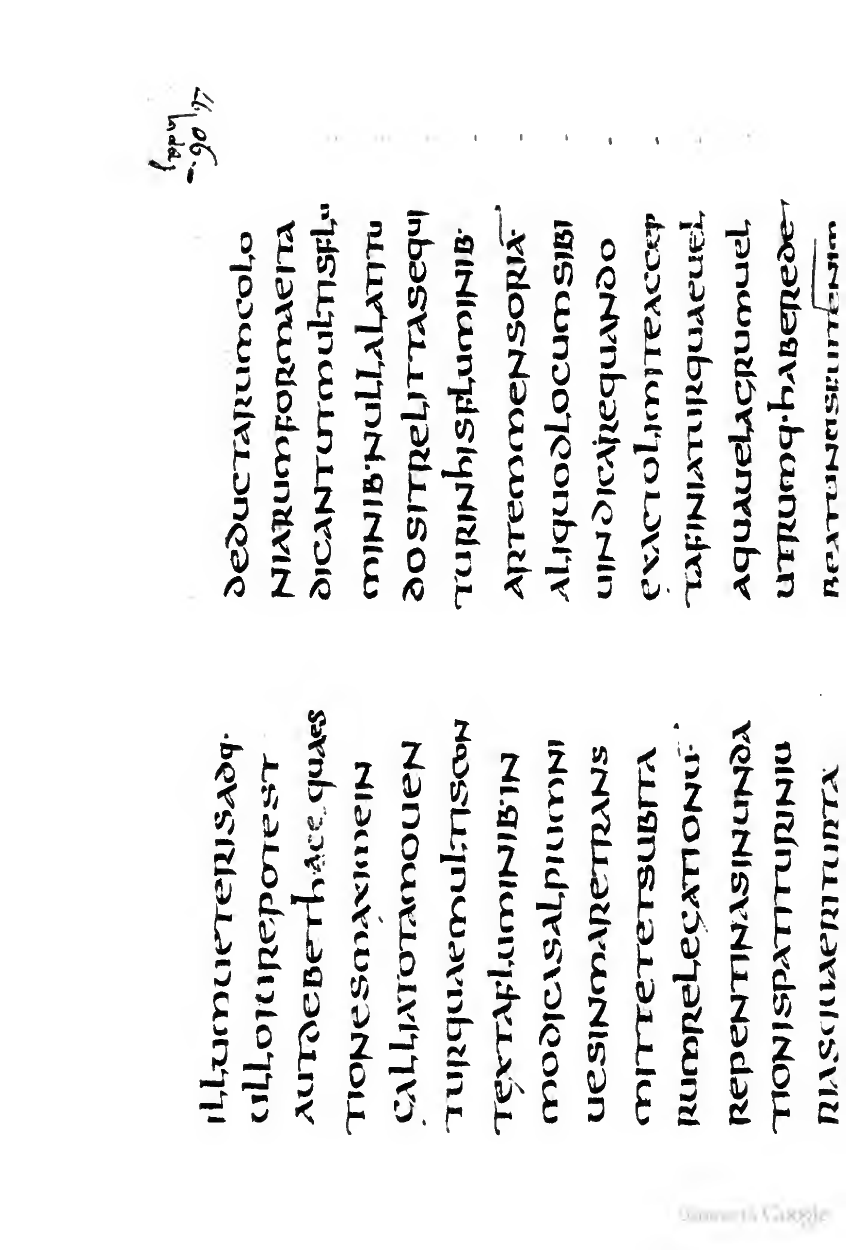 ILLUMUETERISADQ·
UILLOIUREPOTEST
AUTDEBETHACEQUAES
TIONESMAXIMEIN
GALLIATOTAMOUEN
TURQUAEMULTISCON
TEXTAFLUMINIB·IN
MODICASALPIUMNI
UESINMARETRANS
MITTETETSUBITA
RUMRELEGATIONU·
REPENTINASINUNDA
TIONISPATITURINIU
RIASQUAERITURTA
DEDUCTARUMCOLO
NIARUMFORMAEITA
DICANTUTMULTISFLU
MINIB·NULLALATITU
DOSITRELITTASEQUI
TURINHISFLUMINIB·
ARTEMMENSORIA·
ALIQUODLOCUMSIBI
UINDICAREQUANDO
EXACTOLIMITEACCEP
TAFINIATURQUAEUEL
AQUAUELAGRUMUEL
UTRUMQ·HABEREDE
Google